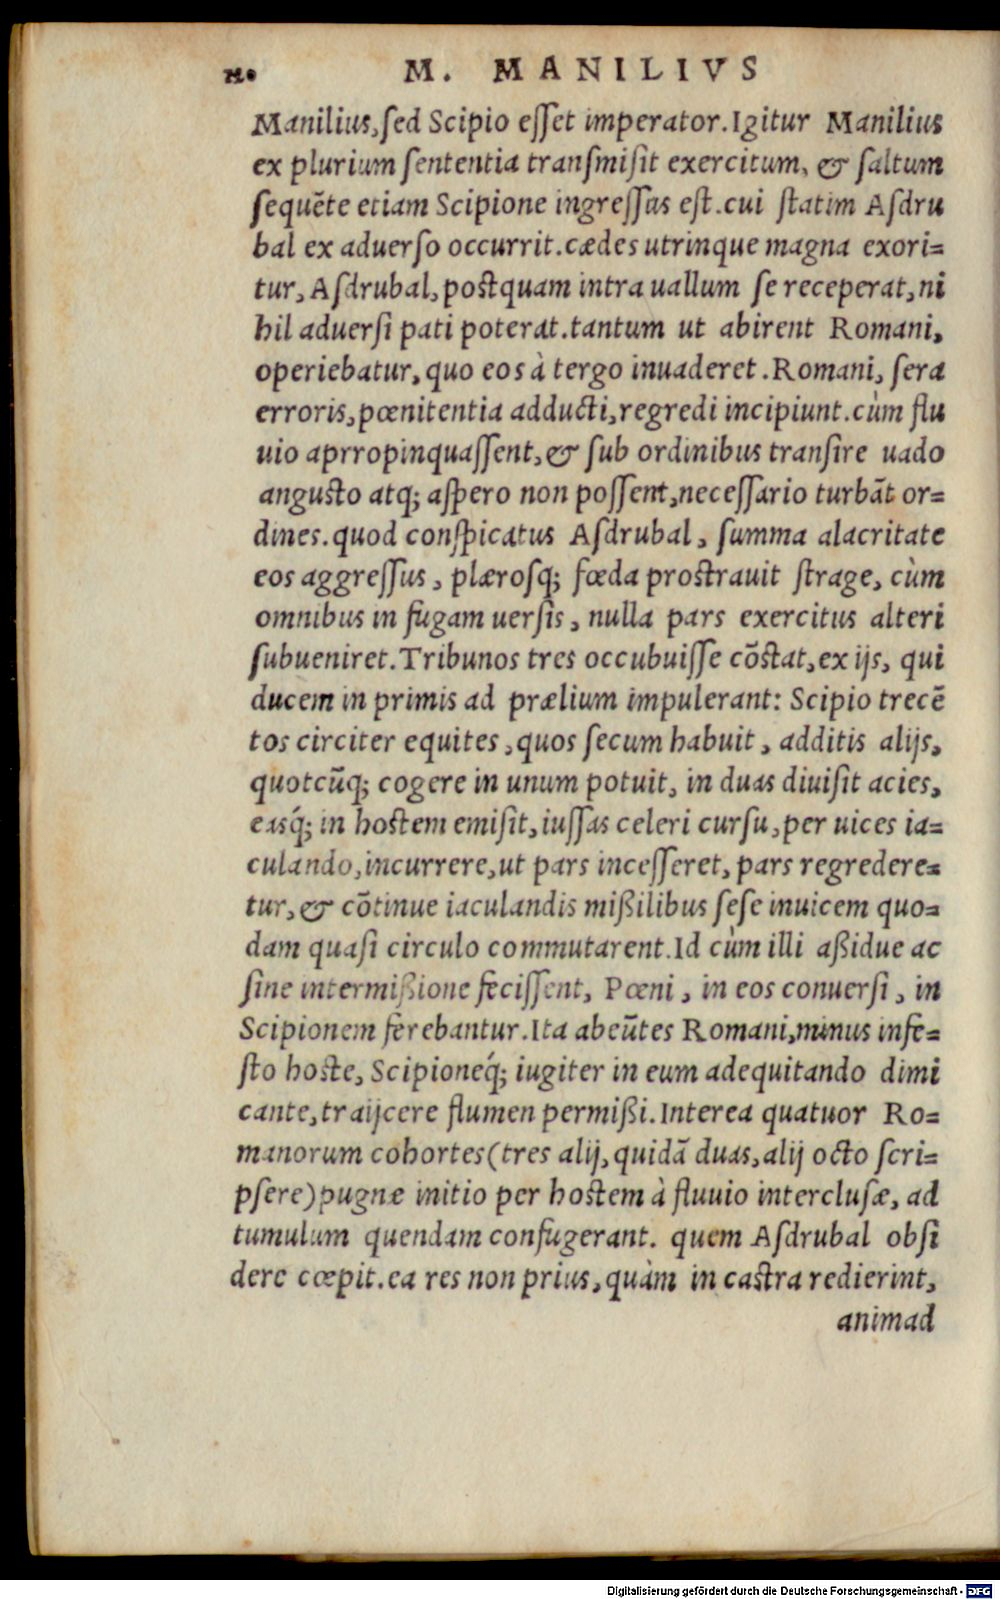 M. MANILIVS
Manilius, sed Scipio esset imperator. Igitur Manilius
ex plurium sententia transmisit exercitum, & saltum
sequēte etiam Scipione ingressus est. cui statim Asdru
bal ex aduerso occurrit. cædes utrinque magna exori=
tur, Asdrubal, postquam intra uallum se receperat, ni
hil aduersi pati poterat. tantum ut abirent Romani,
operiebatur, quo eos à tergo inuaderet. Romani, sera
erroris, pœnitentia adducti, regredi incipiunt. cùm flu
uio aprropinquassent, & sub ordinibus transire uado
angusto atq; aspero non possent, necessario turbāt or=
dines. quod conspicatus Asdrubal, summa alacritate
eos aggressus, plærosq; fœda prostrauit strage, cùm
omnibus in fugam uersis, nulla pars exercitus alteri
subueniret. Tribunos tres occubuisse cōstat, ex ijs, qui
ducem in primis ad prælium impulerant: Scipio trecē
tos circiter equites, quos secum habuit, additis alijs,
quotcūq; cogere in unum potuit, in duas diuisit acies,
easq́; in hostem emisit, iussas celeri cursu, per uices ia=
culando, incurrere, ut pars incesseret, pars regredere=
tur, & cōtinue iaculandis mißilibus sese inuicem quo=
dam quasi circulo commutarent. Id cùm illi aßidue ac
sine intermißione fecissent, Pœni, in eos conuersi, in
Scipionem ferebantur. Ita abeūtes Romani, minus infe=
sto hoste, Scipioneq́; iugiter in eum adequitando dimi
cante, traijcere flumen permißi. Interea quatuor Ro=
manorum cohortes (tres alij, quidā duas, alij octo scri=
psere) pugnæ initio per hostem à fluuio interclusæ, ad
tumulum quendam confugerant. quem Asdrubal obsi
dere cœpit. ea res non prius, quàm in castra redierint,
animad
Digitalisierung gefördert durch die Deutsche Forschungsgemeinschaft - DFG